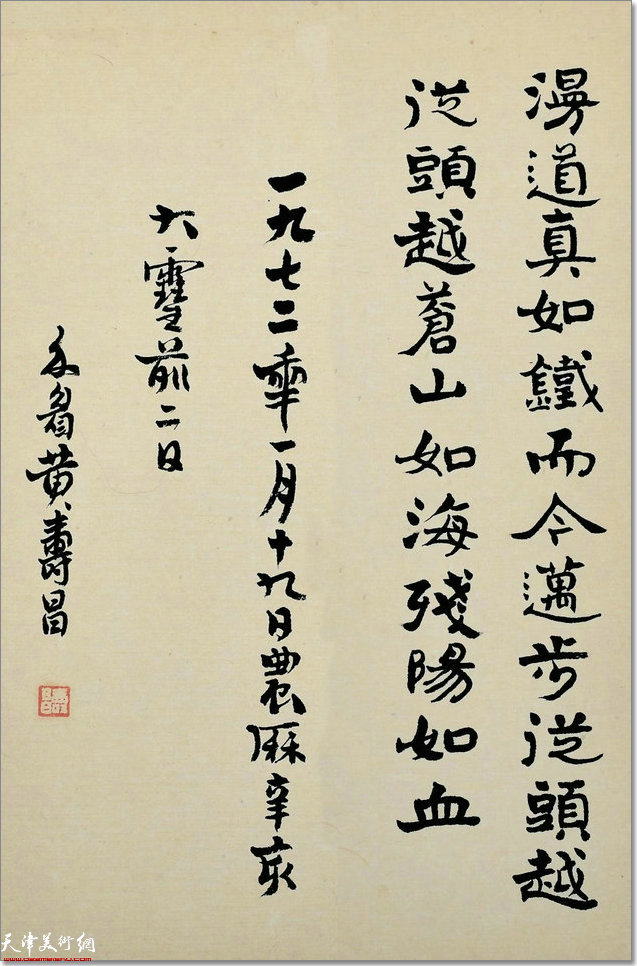 漫道真如鐵而今邁步從頭越
從頭越蒼山如海殘陽如血
一九七二年一月十九日農厤辛亥
大前二日
黄壽昌
天津美術網